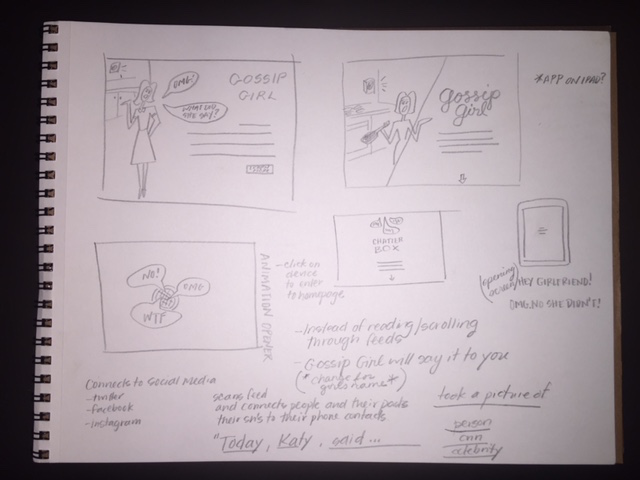 OMG!
WHAT DID
SHE SAY?
GOSSIP
GIRL
gossip
girl
*APP ON IPAD?
NO!
OMG
WTF
ANIMATION OPENER
- click on
device
to enter
to homepage
CHATTER
BOX
(opening
screen)
HEY GIRLFRIEND!
OMG, NO SHE DIDN'T!
- Instead of reading/scrolling
through feeds
- Gossip Girl will say it to you
(*change her
name*)
Connects to social media
- twitter
- facebook
- instagram
scans feed
and connects people and their
their to their phone contacts
"Today, Katy, said...
took a picture of
person
celebrity